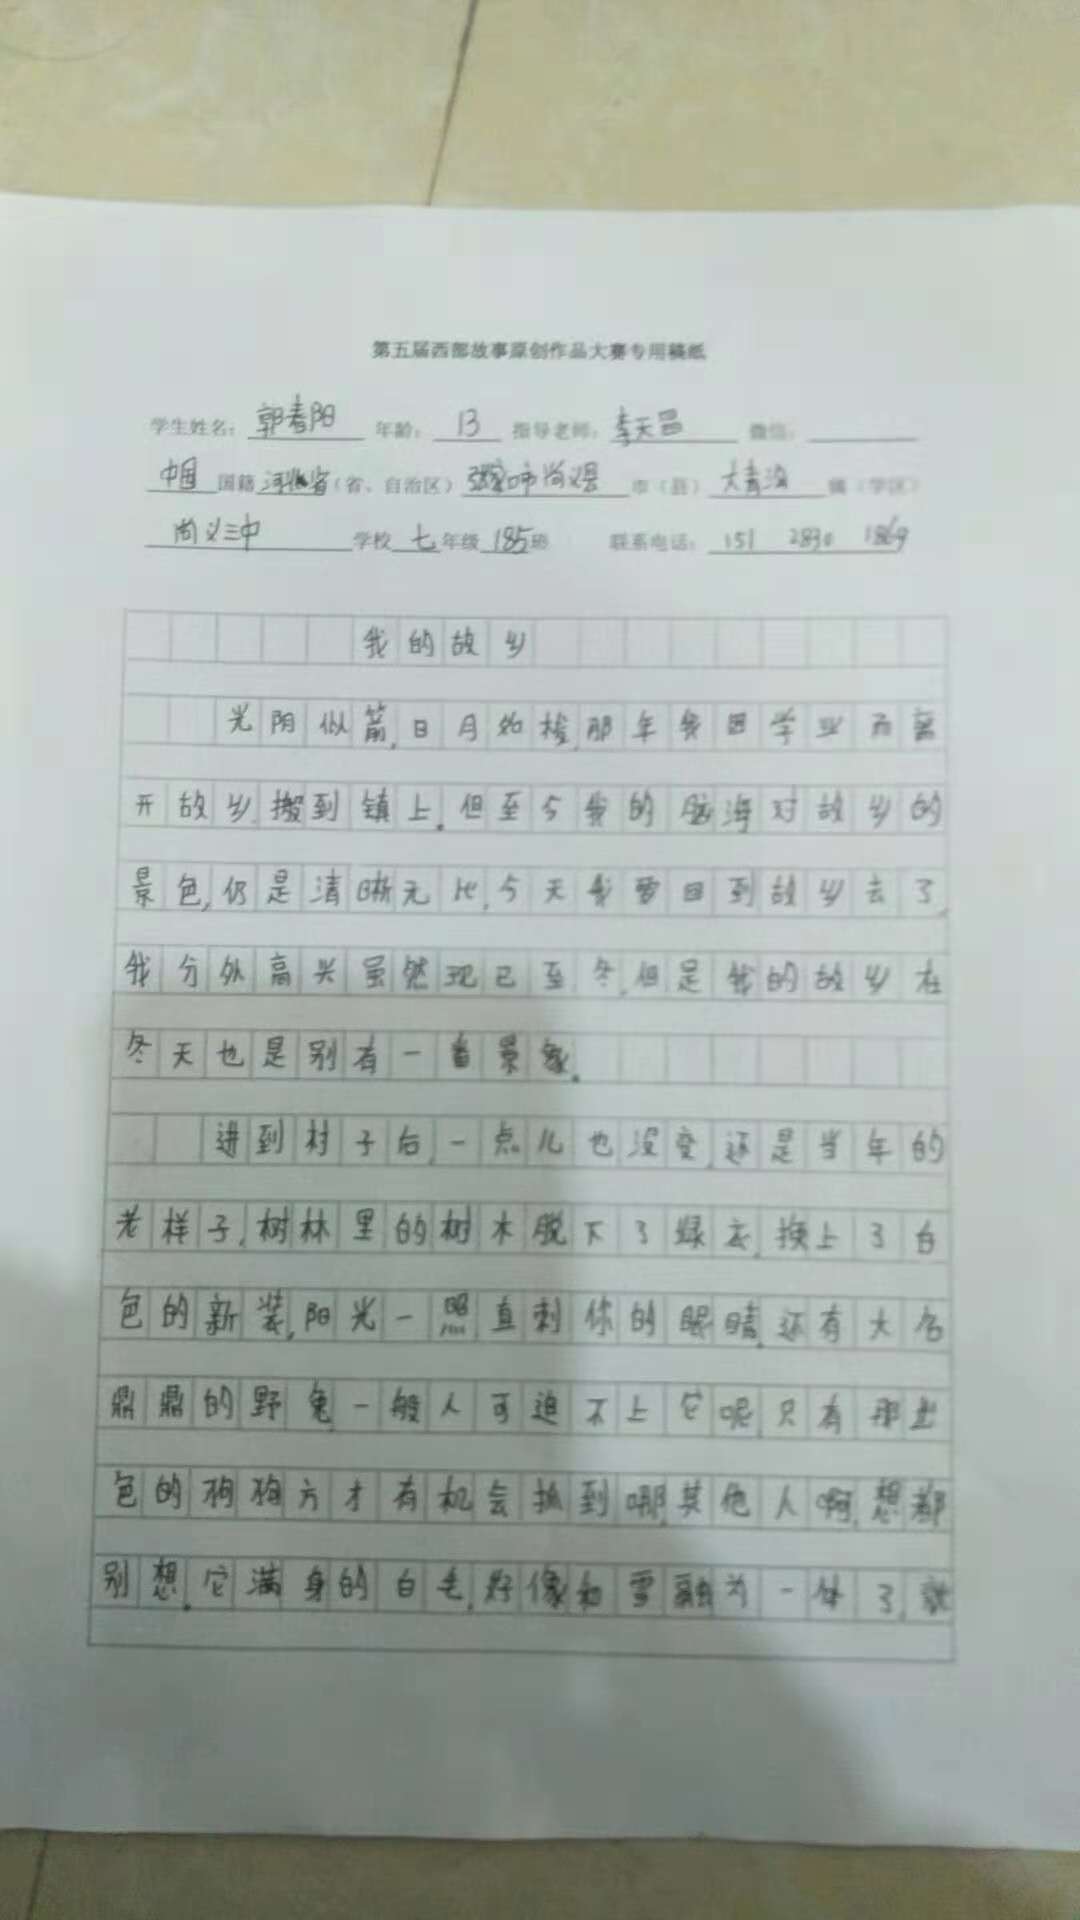 第五届西部故事原创作品大赛专用稿纸
学生姓名：郭春阳 年龄：13 指导老师：李天邑 微信：
中国 国籍 河北省（省、自治区）张家口市尚义县 市（县）大青沟 镇（学区）
尚义三中 学校 七 年级 185 班 联系电话：151 2830 1869
我的故乡
光阴似箭，日月如梭，那年我因学业而离
开故乡，搬到镇上。但至今我的脑海对故乡的
景色，仍是清晰无比，今天我要回到故乡去了，
我分外高兴虽然现已至冬，但是我的故乡在
冬天也是别有一番景象。
进到村子后，一点儿也没变，还是当年的
老样子，树林里的树木脱下了绿衣，换上了白
色的新装，阳光一照直刺你的眼睛，还有大名
鼎鼎的野兔一般人可追不上它呢，只有那出
色的狗狗方才有机会抓到哪，其他人啊，想都
别想。它满身的白毛，好像和雪融为一体了，就